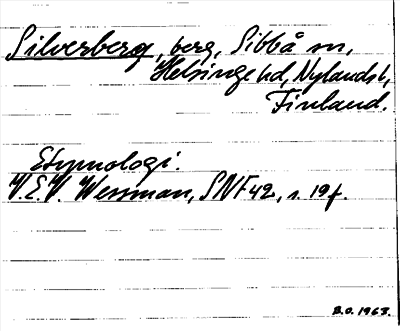 Silverberg, berg, Sibbå sn,
Helsinge hd, Nylands l,
Finland.
Etymologi.
V.E.V. Wessman, SNF 42, s. 19 f.
B.O. 1963.